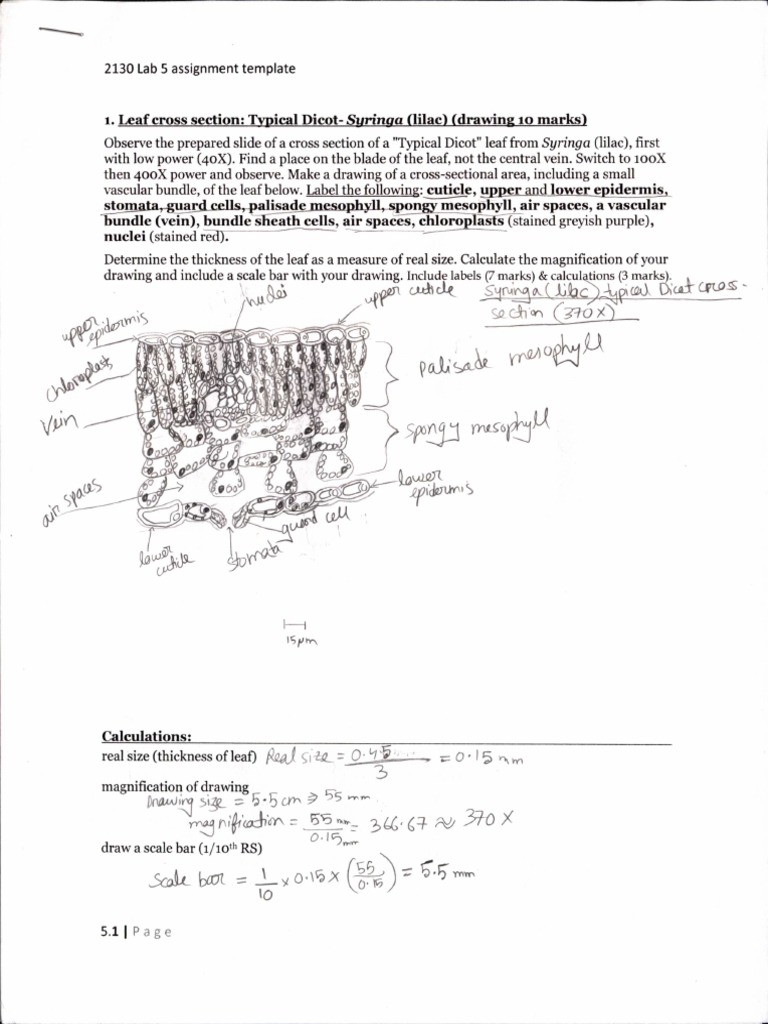 2130 Lab 5 assignment template
1. Leaf cross section: Typical Dicot- Syringa (lilac) (drawing 10 marks)
Observe the prepared slide of a cross section of a "Typical Dicot" leaf from Syringa (lilac), first
with low power (40X). Find a place on the blade of the leaf, not the central vein. Switch to 100X
then 400X power and observe. Make a drawing of a cross-sectional area, including a small
vascular bundle, of the leaf below. Label the following: cuticle, upper and lower epidermis,
stomata, guard cells, palisade mesophyll, spongy mesophyll, air spaces, a vascular
bundle (vein), bundle sheath cells, air spaces, chloroplasts (stained greyish purple),
nuclei (stained red).
Determine the thickness of the leaf as a measure of real size. Calculate the magnification of your
drawing and include a scale bar with your drawing. Include labels (7 marks) & calculations (3 marks).
Syringa (lilac) typical Dicot cross-
section (370X)
nuclei
upper cuticle
upper
epidermis
chloroplast
palisade mesophyll
vein
spongy mesophyll
air spaces
lower
epidermis
guard cell
lower
cuticle
stomata
15µm
Calculations:
real size (thickness of leaf) Real size = 0.45 / 3 = 0.15 mm
magnification of drawing
Drawing size = 5.5cm ⇒ 55 mm
magnification = 55 mm / 0.15 mm = 366.67 ≈ 370 X
draw a scale bar (1/10th RS)
Scale bar = 1/10 x 0.15 x (55/0.15) = 5.5 mm
5.1 | Page